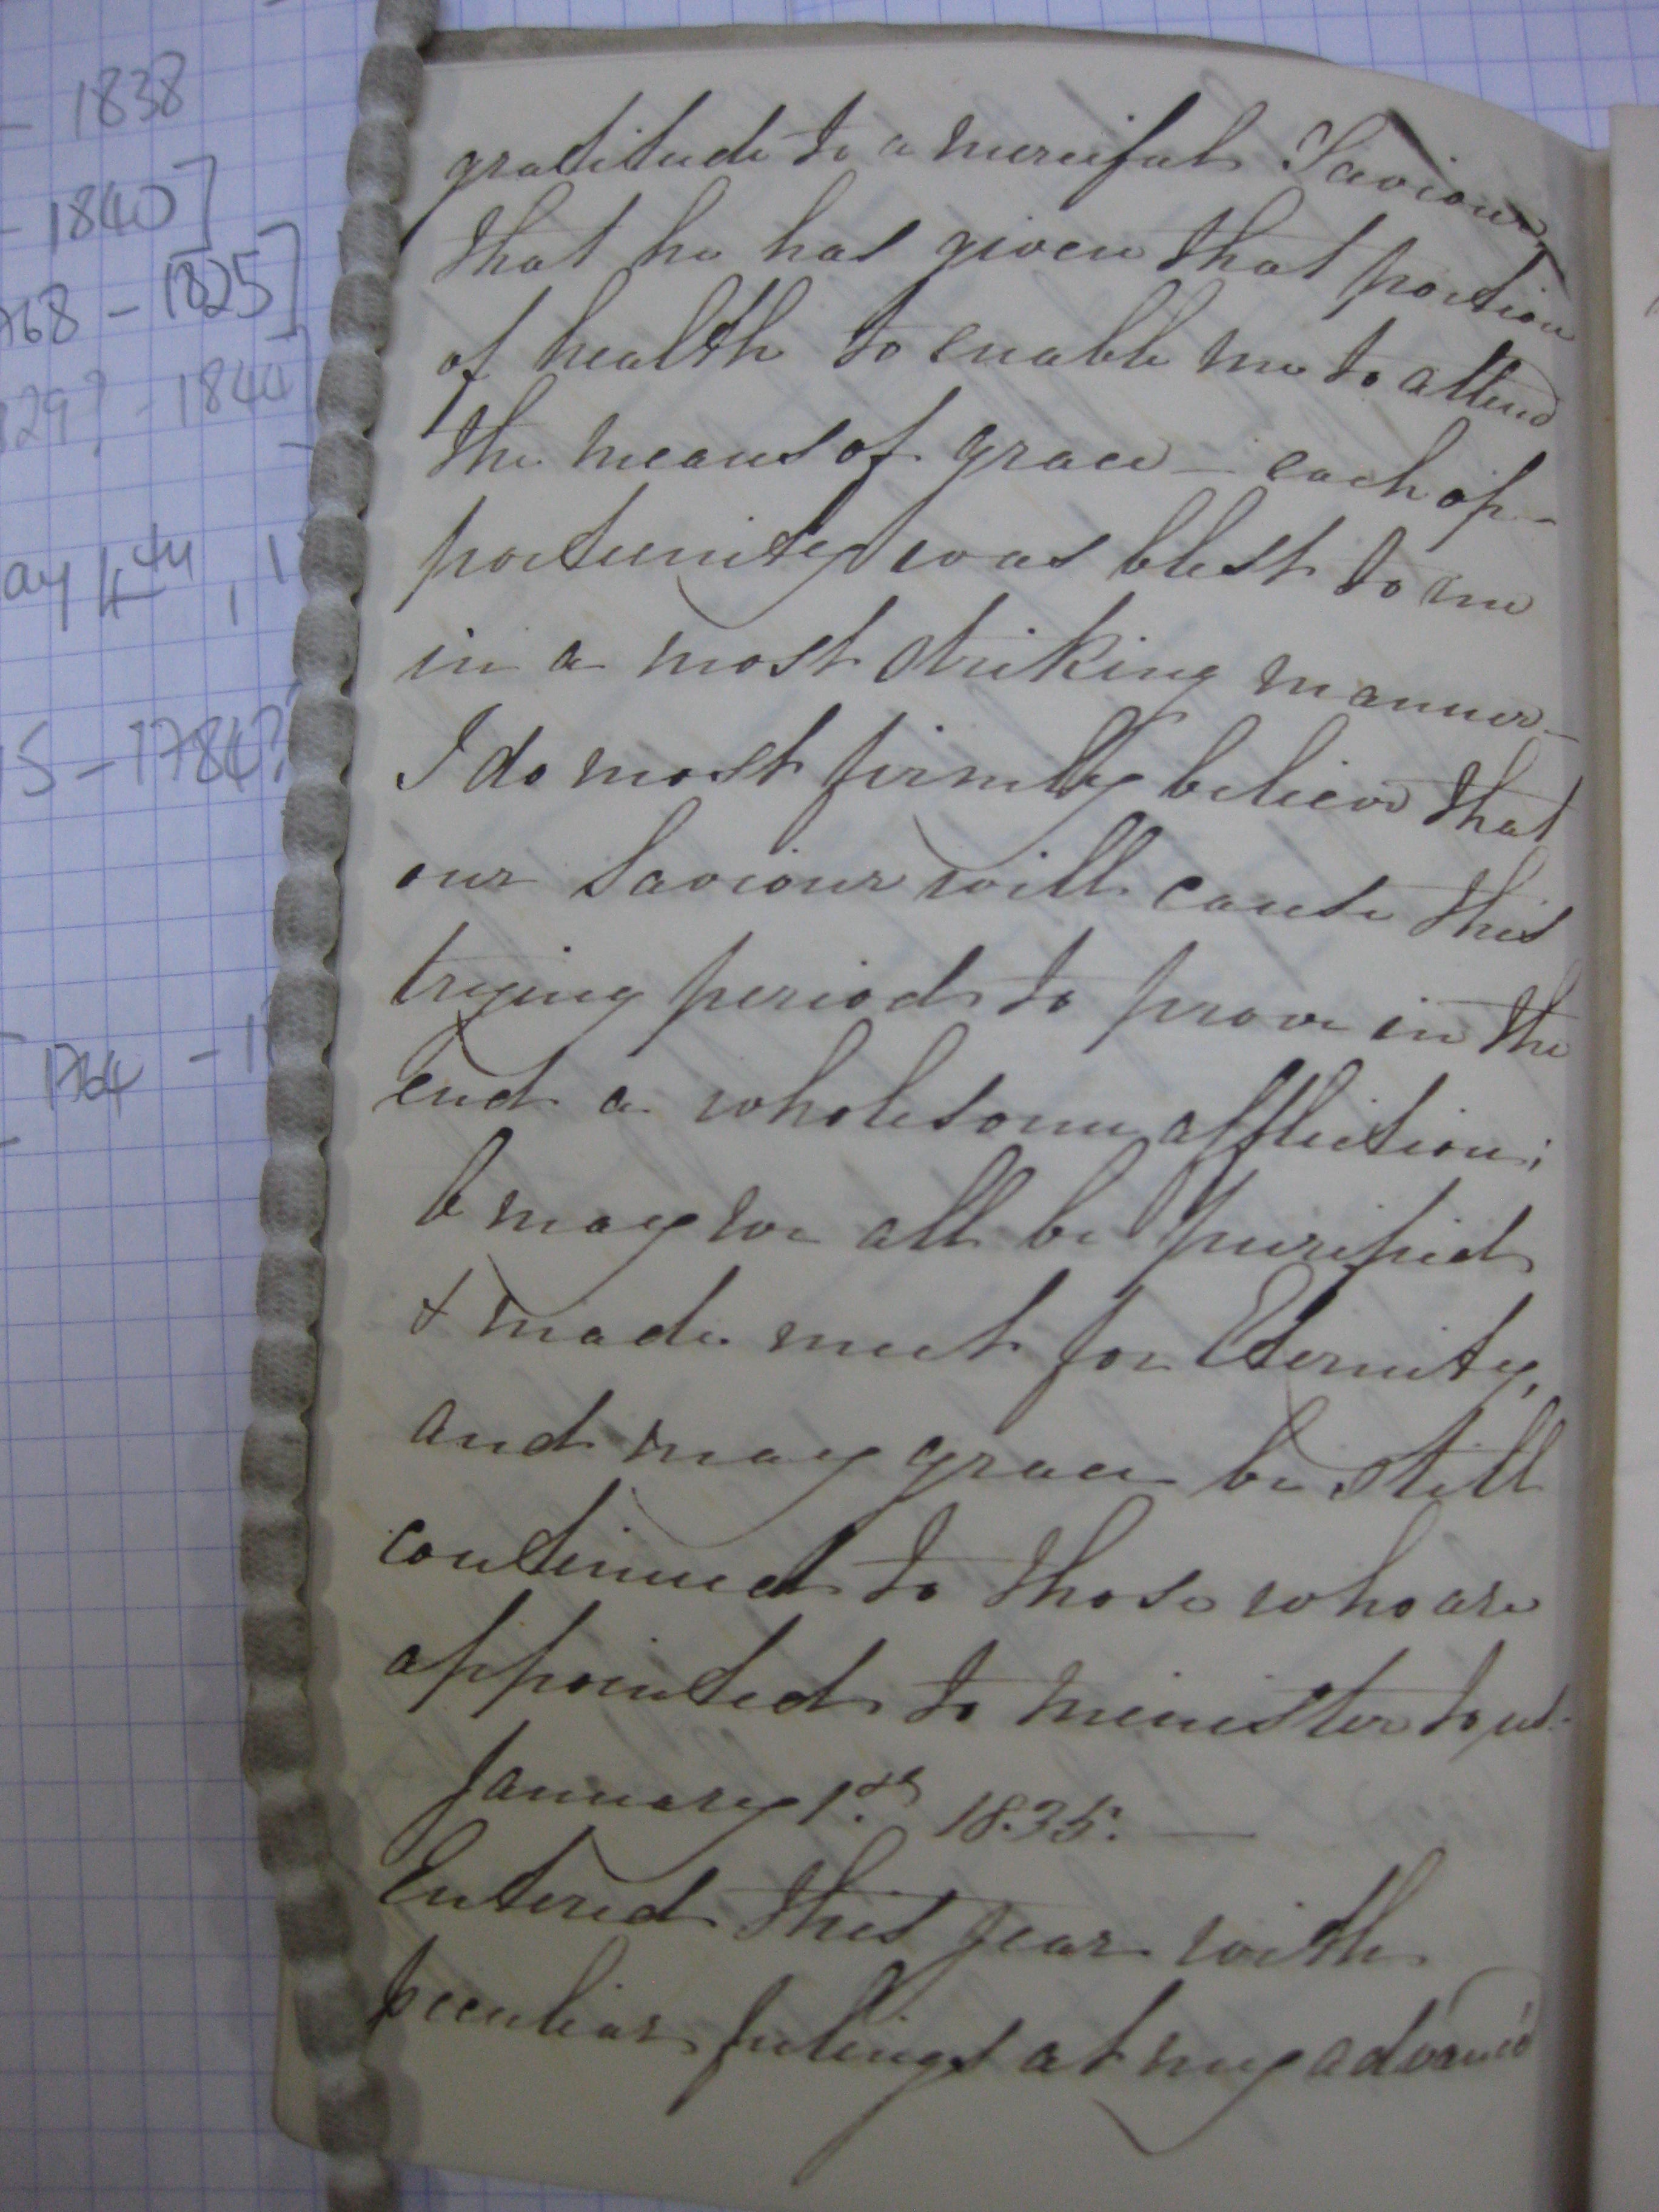 - 1838
- 1840]
768 - 1825]
129? - 1844
ay 4th, 1
5 - 1784?
1764 - 1
gratitude to a merciful Saviour,
that he has given that portion
of health to enable me to attend
the means of grace - each op-
portunity was blest to me
in a most striking manner -
I do most firmly believe that
our Saviour will cause this
trying period to prove in the
end a wholesome affliction;
O may we all be purified
& made meet for Eternity,
and may grace be still
continued to those who are
appointed to minister to us.
January 1.st 1835. —
Entered this year with
peculiar feelings at my advanc'd